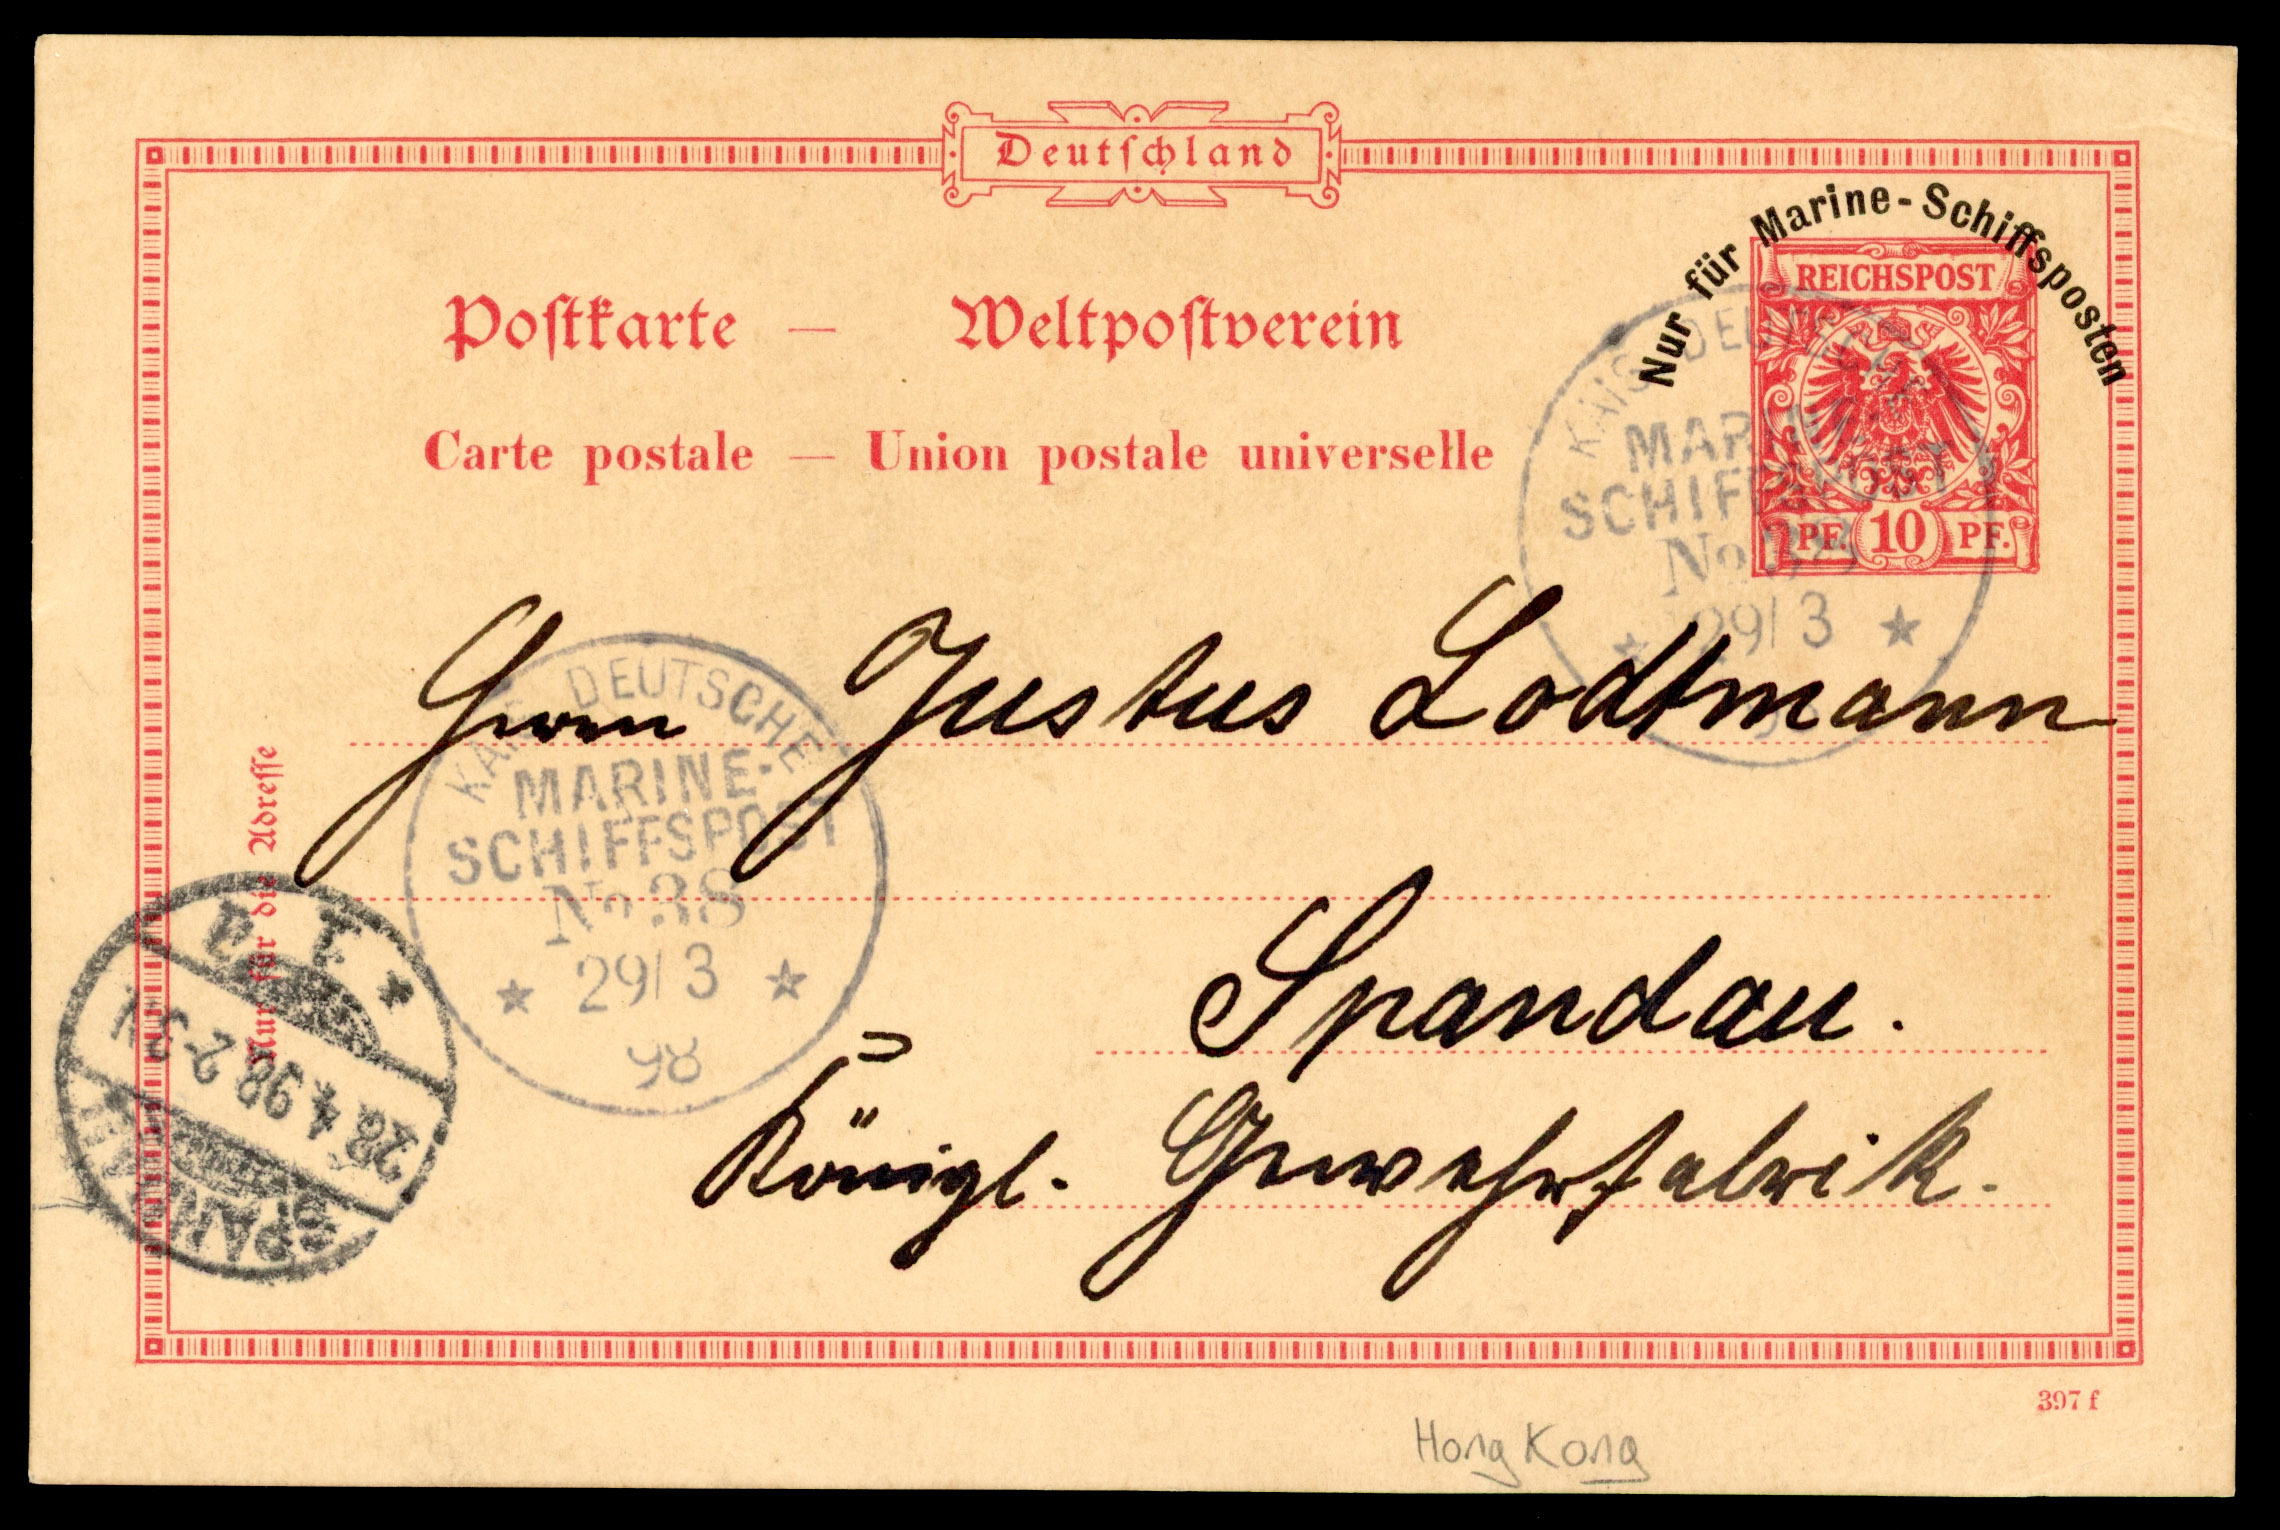 Deutschland
Nur für Marine-Schiffsposten
REICHSPOST
PF. 10 PF.
Postkarte — Weltpostverein
Carte postale — Union postale universelle
KAIS. DEUTSCHE
MARINE-
SCHIFFSPOST
No 38
* 29/3 *
98
Herrn Justus Lodtmann
KAIS. DEUTSCHE
MARINE-
SCHIFFSPOST
No 38
* 29/3 *
98
Nur für die Adresse
Spandau.
Königl. Gewehrfabrik.
SPANDAU
28.4.98 2-3N
* 1 a
397 f
Hong Kong